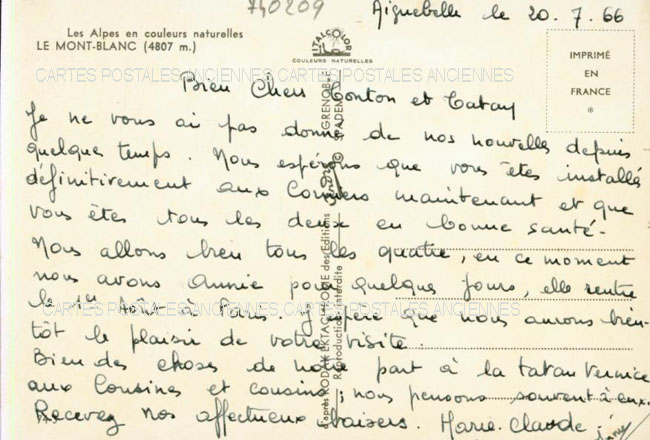 740209
Aiguebelle le 20.7.66
Les Alpes en couleurs naturelles
LE MONT-BLANC (4807 m.)
ITALCOLOR
COULEURS NATURELLES
IMPRIMÉ
EN
FRANCE
*
CARTES POSTALES ANCIENNES CARTES POSTALES ANCIENNES
Bien Chers Tonton et Tatan
Je ne vous ai pas donné de nos nouvelles depuis
quelque temps. Nous espérons que vous êtes installés
définitivement aux maintenant et que
vous êtes tous les deux en bonne santé.
Nous allons bien tous les quatre, en ce moment
nous avons Annie pour quelques jours, elle rentre
le 1er Août à Paris. J'espère que nous aurons bien-
CARTES POSTALES ANCIENNES CARTES POSTALES ANCIENNES
tôt le plaisir de votre visite.
Bien des choses de notre part à la tatan Vernice
aux Cousines et cousins; nous pensons souvent à eux.
Recevez nos affectueux baisers. Marie-Claude
GRENOBLE
SPADEM
d'après KODAK EKTACHROME des Editions
Reproduction interdite